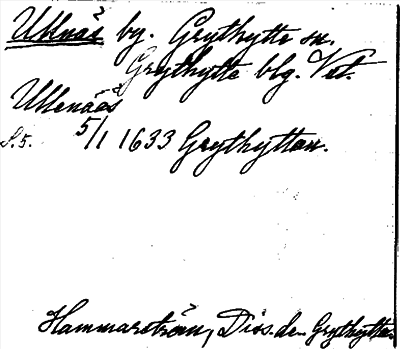 Ullnäs by. Grythytte sn.
Grythytte blg. Vst.
Ullenääs
S. 5. 5/1 1633 Grythyttan.
Hammarström, Diss. de Grythyttan.